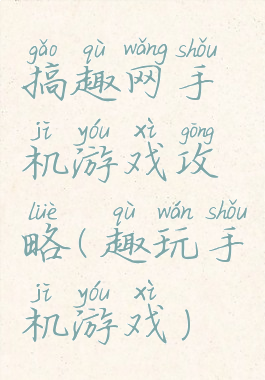 gǎo qù wǎng shǒu
搞趣网手
jī yóu xì gōng
机游戏攻
lüè qù wán shǒu
略(趣玩手
jī yóu xì
机游戏)